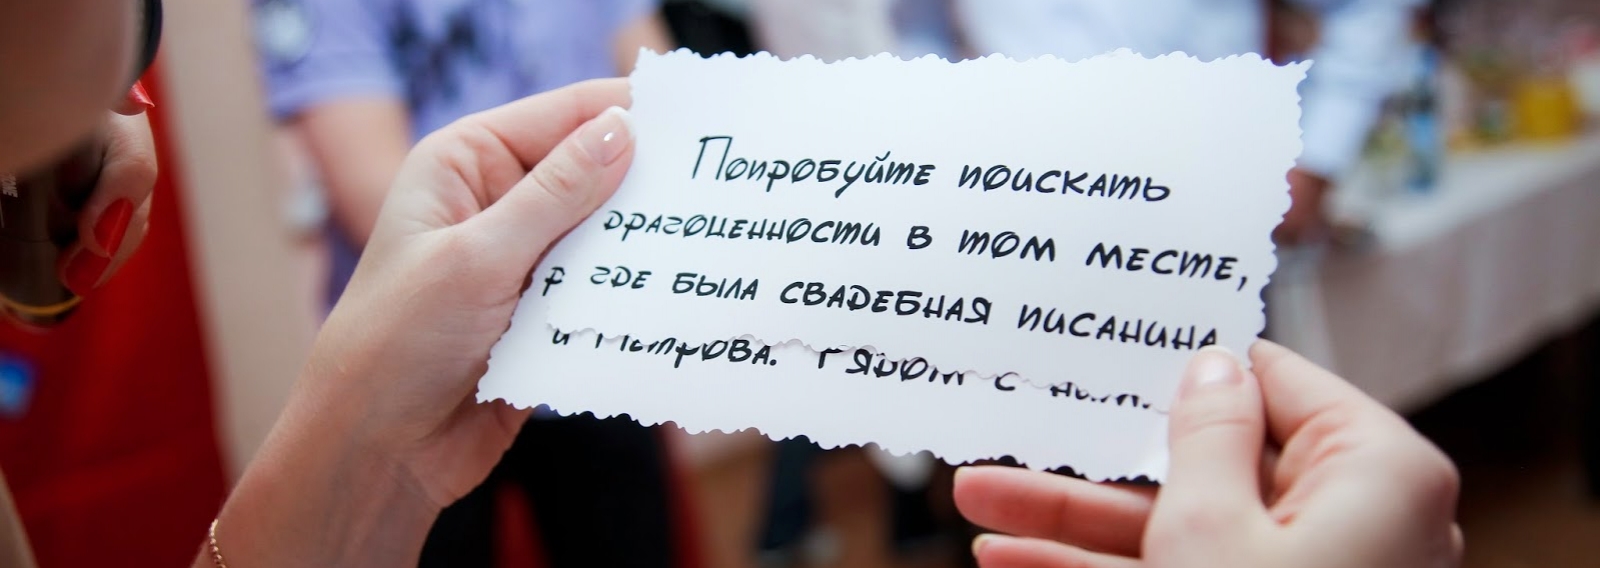 Попробуйте поискать
драгоценности в том месте,
где была свадебная писанина
рядом с